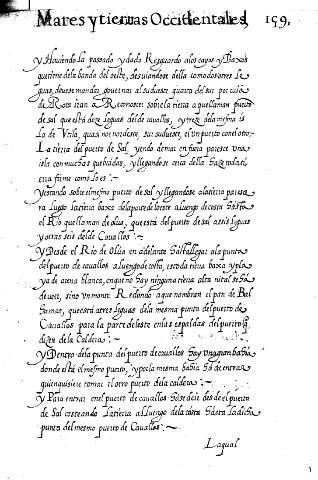 Mares y tierras Occidentales, 159,
y Haviendo la passado y dado Resguardo alos cayos y Baxos
que tiene dela banda del oeste, desviandose della comodos
guas, deveseman dar governar al sudueste quarta del sur por cuia
de Rota iran a Reconoscer sobre la tierra a que llaman puerto
de sal que está diez leguas del de cavallos, y treze dela mesma is
La de Utila, quasi nor nordeste, sur sudueste, el un puerto con el otro
La tierra del puerto de Sal, yendo demar en fuera parece una
isla con muchas quebradas, y llegandose cerca della haze toda ti
erra firme como lo es:~
y estando sobre el mesmo puerto de sal y llegandose a la tierra parece
ra luego la tierra baxa dela parte del oeste a luengo de costa hasta
el Rio que llaman de olua, que está del puerto de sal a seis leguas
y otras seis del de Cavallos:~
y Desde el Rio de Olúa en adelante hasta llegar ala punta
del puerto de cavallos a luengo de costa, es toda tierra baxa y pla
ya de arena blanca, en que no hay ninguna tierra alta ni tal se ha
de ver, sino un monte Redondo a que nombran el pan de Bal
hamar, que está tres leguas dela mesma punta del puerto de
Cavallos para la parte del oeste en las espaldas del puerto q
dizen de la Caldera:~
y Dentro dela punta del puerto de cavallos hay un a gran bahia
donde está el mesmo puerto, y por la mesma bahia ha de entrar
quien quisiere tomar el otro puerto dela caldera:~
y Para entrar en el puerto de cavallos ha se de ir desde el puerto
de Sal costeando la tierra a Luengo dela costa hasta la dicha
punta del mesmo puerto de Cavallos:~
La qual